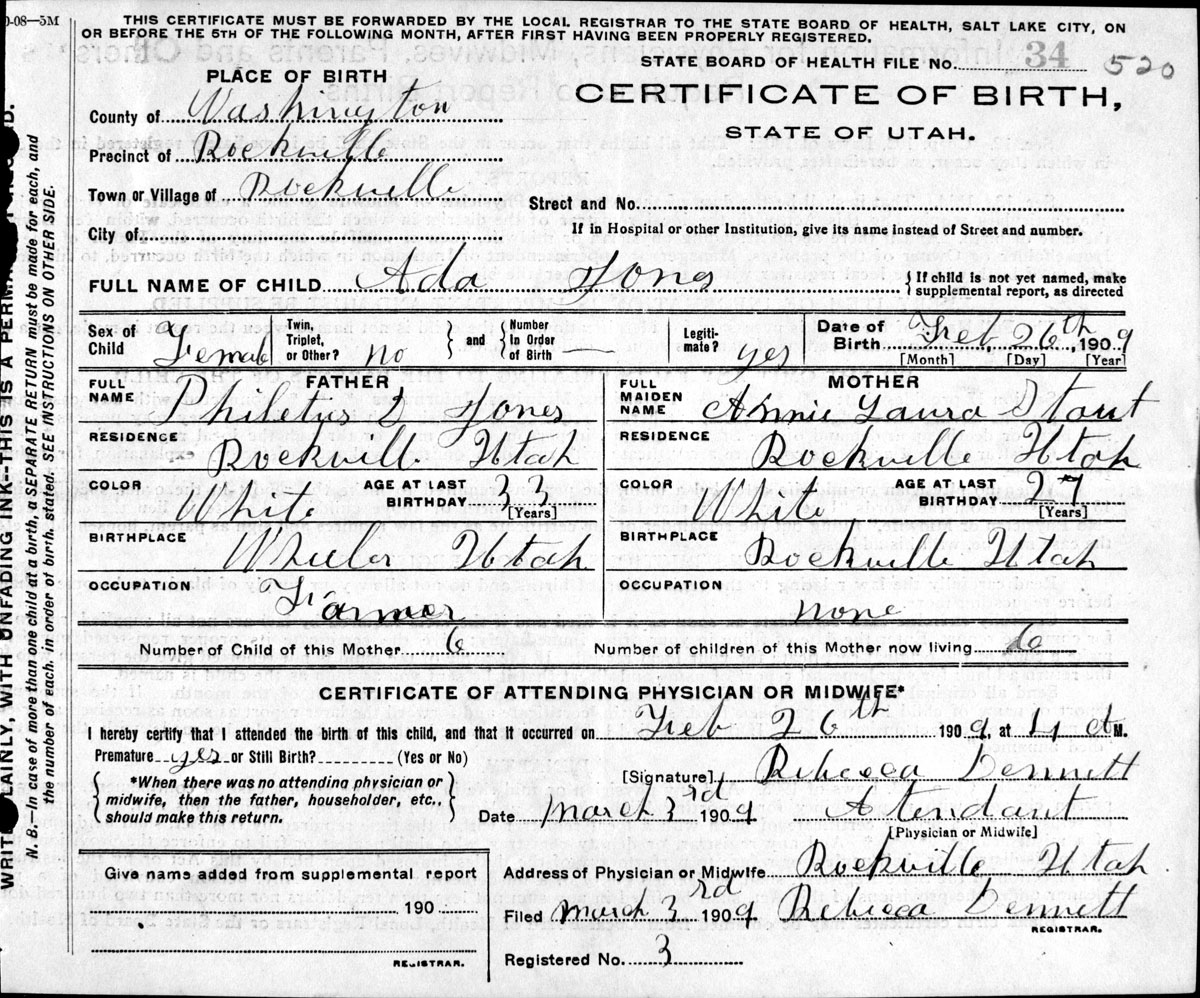 0-08—5M
THIS CERTIFICATE MUST BE FORWARDED BY THE LOCAL REGISTRAR TO THE STATE BOARD OF HEALTH, SALT LAKE CITY, ON
OR BEFORE THE 5TH OF THE FOLLOWING MONTH, AFTER FIRST HAVING BEEN PROPERLY REGISTERED.
STATE BOARD OF HEALTH FILE NO. 34 520
PLACE OF BIRTH
CERTIFICATE OF BIRTH,
STATE OF UTAH.
County of Washington
Precinct of Rockville
Town or Village of Rockville
Street and No.
City of
If in Hospital or other Institution, give its name instead of Street and number.
FULL NAME OF CHILD Ada Jones { If child is not yet named, make supplemental report, as directed
Sex of Child Female Twin, Triplet, or Other? no } and { Number In Order of Birth — Legiti- mate? yes Date of Birth Feb, 26th, 1909
[Month] [Day] [Year]
FATHER
FULL NAME Philetus D Jones
RESIDENCE Rockville Utah
COLOR White AGE AT LAST BIRTHDAY 33 [Years]
BIRTHPLACE Wheeler Utah
OCCUPATION Farmer
MOTHER
FULL MAIDEN NAME Annie Laura Stout
RESIDENCE Rockville Utah
COLOR White AGE AT LAST BIRTHDAY 27 [Years]
BIRTHPLACE Rockville Utah
OCCUPATION none
Number of Child of this Mother 6 Number of children of this Mother now living 6
CERTIFICATE OF ATTENDING PHYSICIAN OR MIDWIFE*
I hereby certify that I attended the birth of this child, and that it occurred on Feb 26th 1909, at 4 a M.
Premature yes or Still Birth? (Yes or No)
{ *When there was no attending physician or midwife, then the father, householder, etc., should make this return. }
[Signature] Rebecca Dennett
Date March 3rd 1909 Atendant
[Physician or Midwife]
Address of Physician or Midwife Rockville Utah
Filed March 3rd 1909 Rebecca Dennett
REGISTRAR.
Registered No. 3
Give name added from supplemental report
190
REGISTRAR.
N. B.—In case of more than one child at a birth, a SEPARATE RETURN must be made for each, and
the number of each, in order of birth, stated. SEE INSTRUCTIONS ON OTHER SIDE.